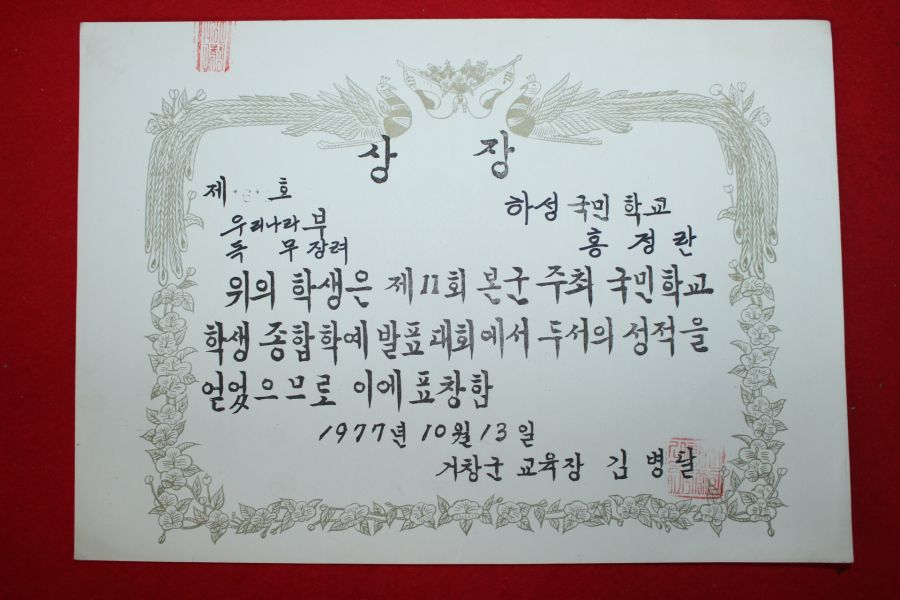 상 장
제 호
하성 국민 학교
우리나라부
독 무 장려
홍 정 란
위의 학생은 제11회 본군 주최 국민학교
학생 종합학예 발표대회에서 두서의 성적을
얻었으므로 이에 표창함
1977년 10월 13일
거창군 교육장 김 병 달